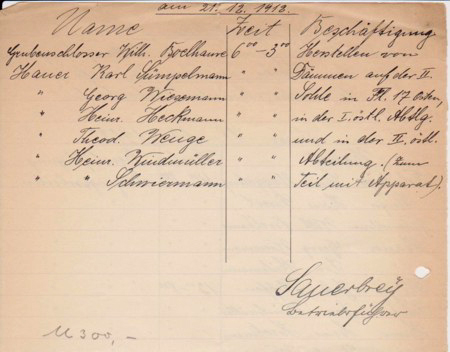 am 21.12.1912.
Name Zeit Beschäftigung
Grubenschlosser Wilh. Boelhauve 6⁰⁰ – 3⁰⁰ Herstellen von
Hauer Karl Simpelmann " " Dämmen auf der II.
" Georg Wiesemann " " Sohle in Fl. 17 Osten,
" Heinr. Heckmann " " in der I. östl. Abtlg.
" Theod. Wenge " " und in der II. östl.
" Heinr. Rudmüller " " Abteilung. (Zum
" " Schwiermann " " Teil mit Apparat).
Sauerbrey
Betriebsführer
M 300,-